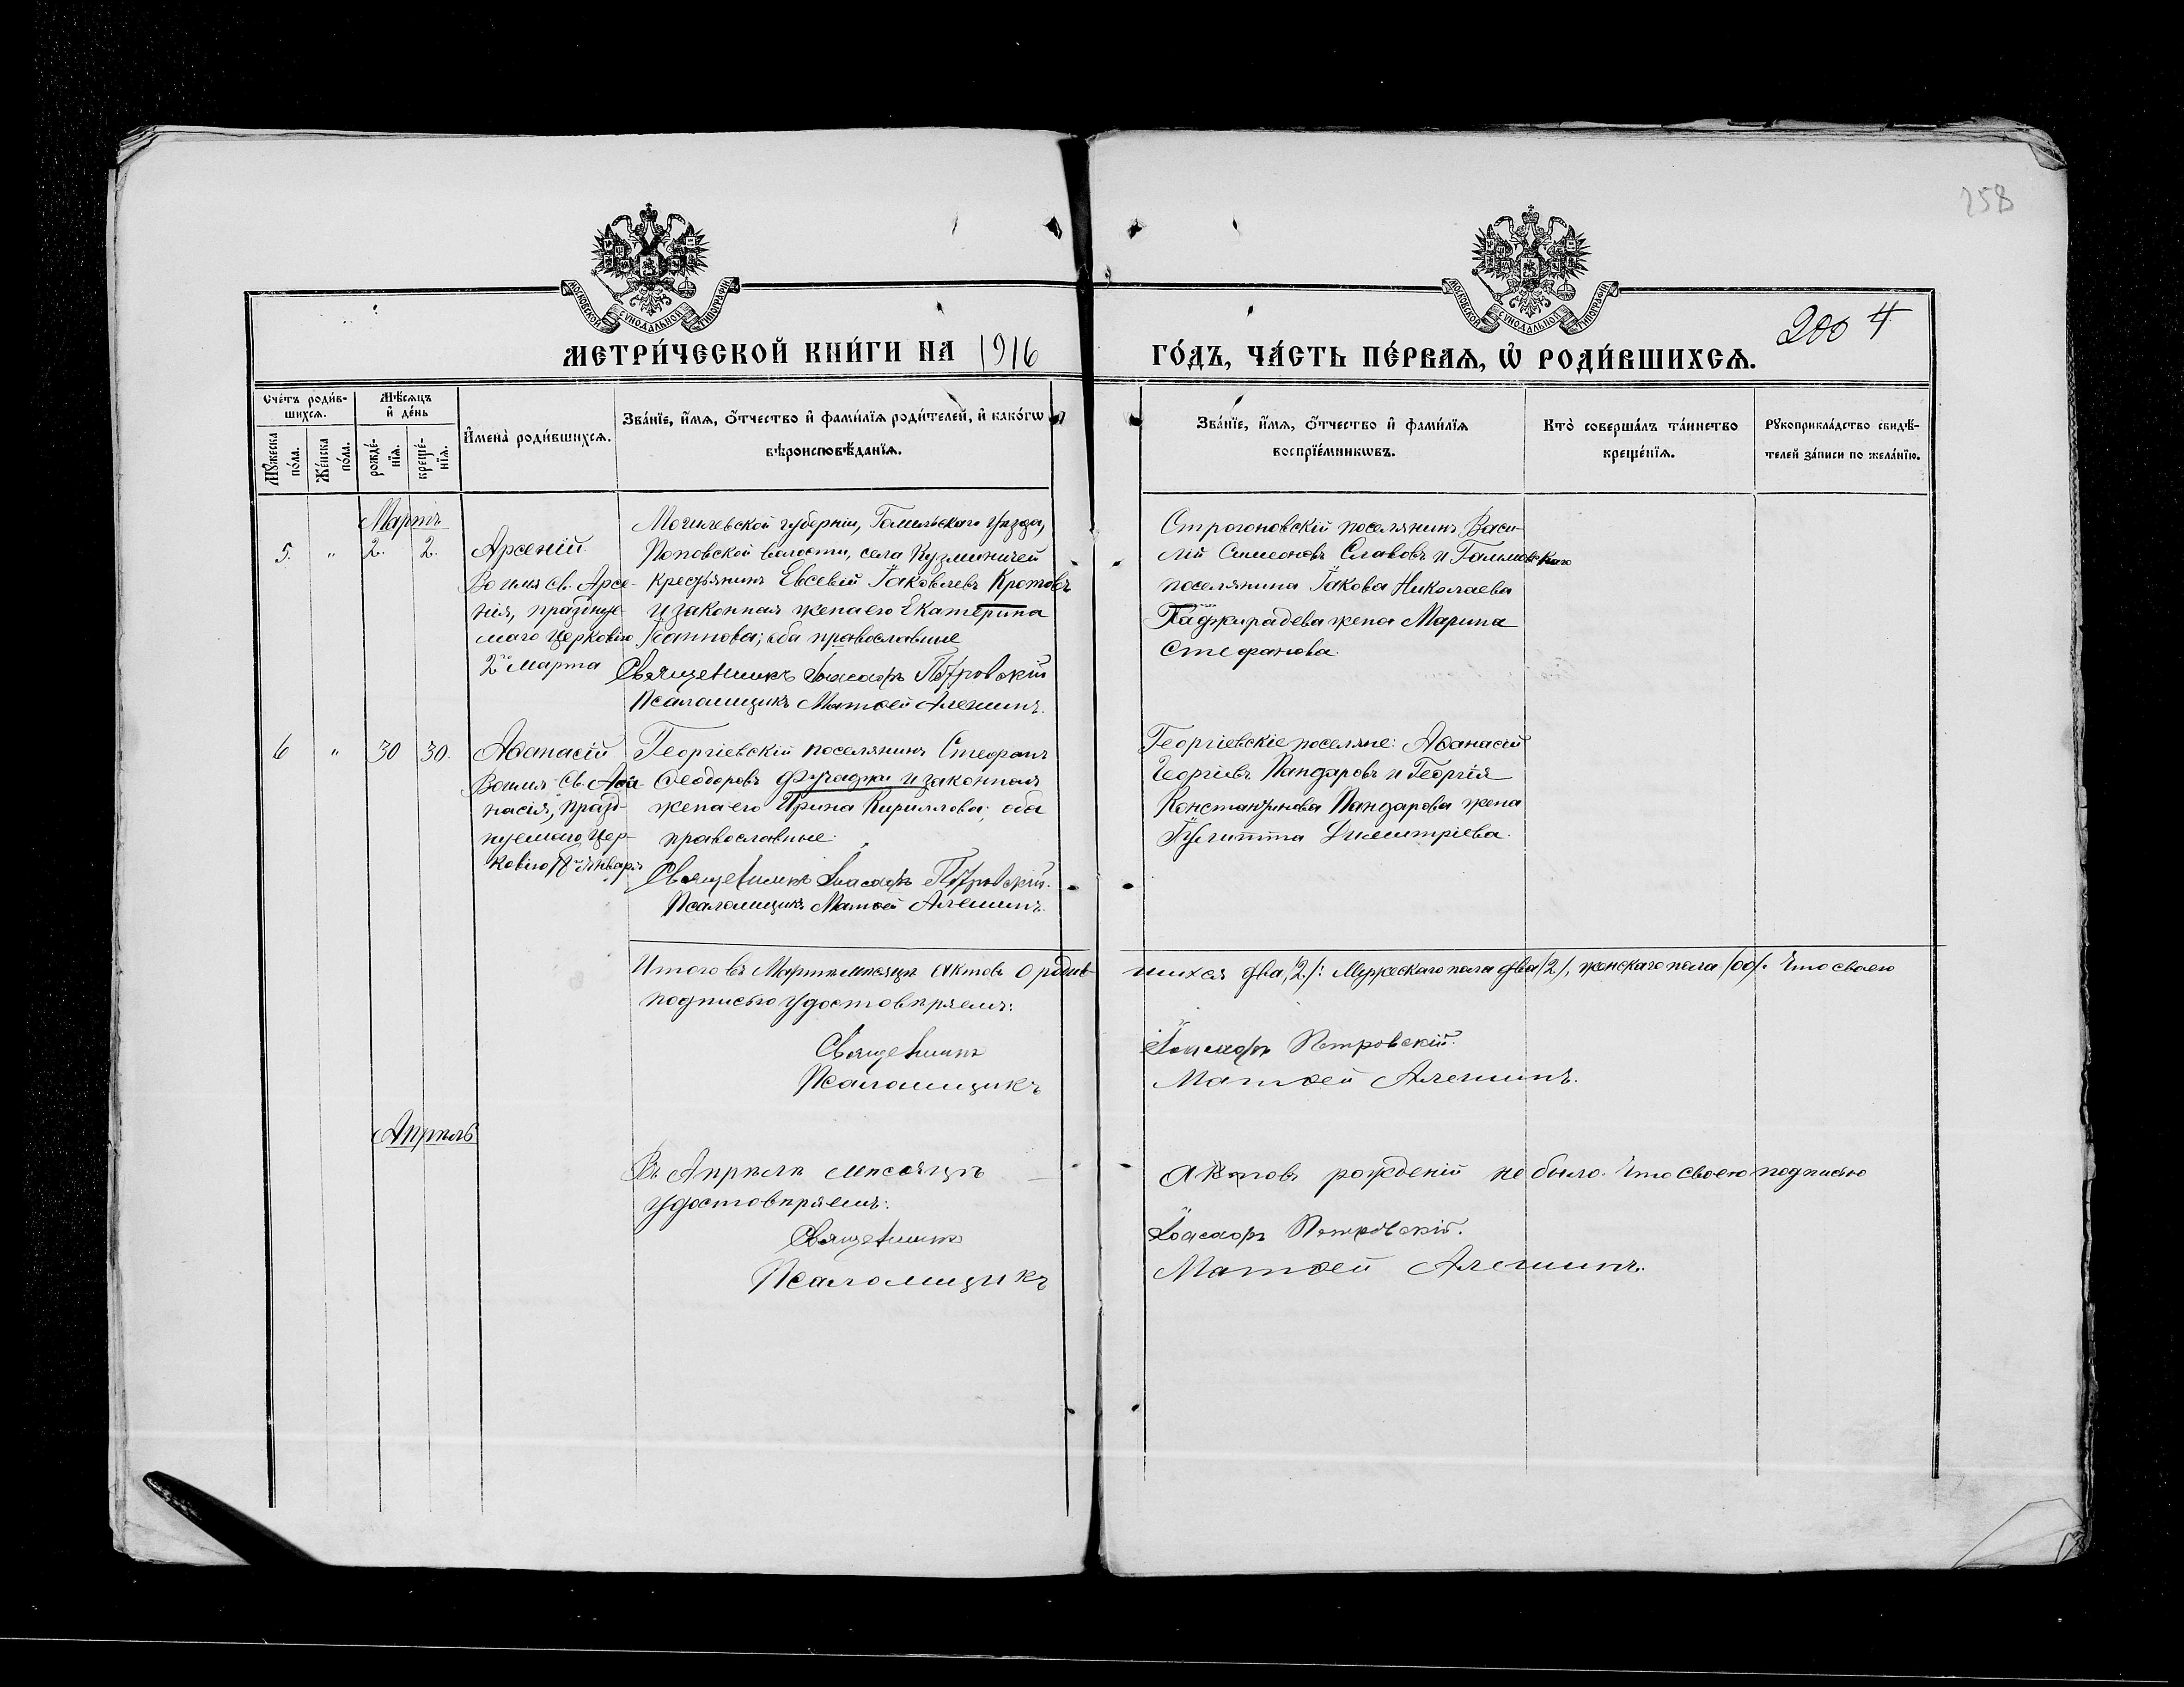 258
МОСКОВСКОЙ СУНОДАЛЬНОЙ ТИПОГРАФІИ
МОСКОВСКОЙ СУНОДАЛЬНОЙ ТИПОГРАФІИ
200 4
МЕТРИ́ЧЕСКОЙ КНИ́ГИ НА 1916
ГО́ДЪ, ЧА́СТЬ ПЕ́РВАЯ, Ѡ҆ РОДИ́ВШИХСЯ.
Сче́тъ роди́в-
шихся.
Мꙋ́жеска
по́ла.
Же́нска
по́ла.
Мѣ́сяцъ
и҆ де́нь
рожде́-
нїя.
креще́-
нїя.
И҆мена̀ роди́вшихся.
Зва́нїе, и҆́мя, ѻ҆́тчество и҆ фами́лїя роди́телей, и҆ како́гѡ
вѣроисповѣ́данїя.
Зва́нїе, и҆́мя, ѻ҆́тчество и҆ фами́лїя
воспрїе́мникѡвъ.
Кто̀ соверша́лъ та́инство
креще́нїя.
Рꙋкоприкла́дство свидѣ́-
телей за́писи по жела́нїю.
Мартъ
5. " 2. 2.
Арсеній
Во имя св. Арсе-
нія, празднуе-
маго Церковію
2го Марта
Могилевской губерніи, Гомельскаго уѣзда,
Поповской волости, села Кузминичей
крестьянинъ Евсевій Іаковлевъ Кротовъ
и законная жена его Екатерина
Іоаннова; оба православные
Священникъ Іоасафъ Петровскій
Псаломщикъ Матѳей Алешинъ.
Строгоновскій поселянинъ Васи-
лій Симеоновъ Славовъ и
поселянина Іакова Николаева
жена Марина
Стефанова.
6 " 30 30.
Аѳанасій
Во имя Св. Аѳа-
насія, празд-
нуемаго Цер-
ковію 18го Января
Георгіевскій поселянинъ Стефанъ
Ѳеодоровъ и законная
жена его Ирина Кириллова; оба
православные.
Священникъ Іоасафъ Петровскій.
Псаломщикъ Матѳей Алешинъ.
Георгіевскіе поселяне: Аѳанасій
Георгіевъ Пандаровъ и Георгія
Константинова Пандарова жена
Димитріева.
Итого въ Мартѣ мѣсяцѣ актовъ о родив-
шихся два /2./: Мужескаго пола два /2/, женскаго пола /00/. Что своею
подписью удостовѣряемъ:
Священникъ Іоасафъ Петровскій.
Псаломщикъ Матѳей Алешинъ.
Апрѣль
Въ Апрѣлѣ мѣсяцѣ — актовъ рожденій не было. Что своею подписью
удостовѣряемъ:
Священникъ Іоасафъ Петровскій.
Псаломщикъ Матѳей Алешинъ.